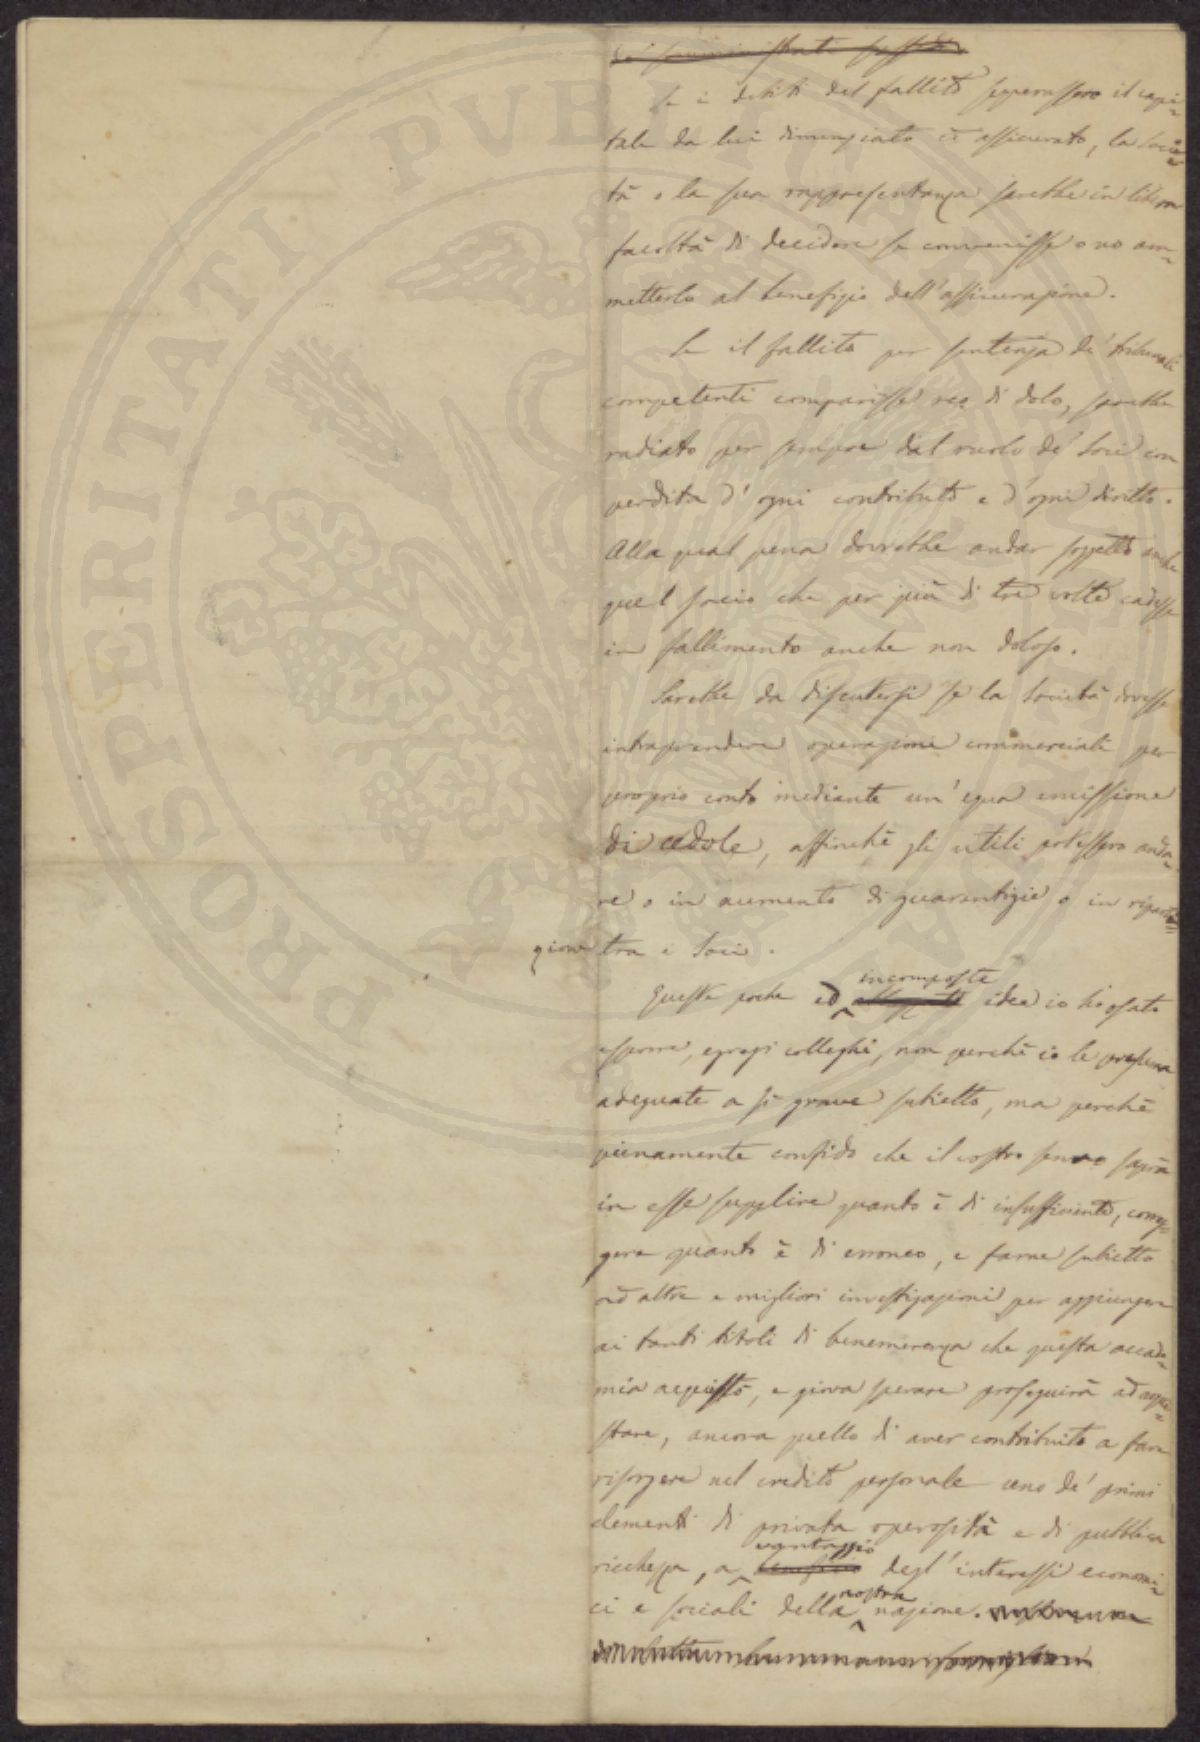 Se i debiti del fallito superassero il capi=
tale da lui dinunziato ed assicurato, la Socie=
tà o la sua rappresentanza sarebbe in libera
facoltà di decidere se convenisse o no am=
metterlo al benefizio dell'assicurazione.
Se il fallito per sentenza de' tribunali
competenti comparisse reo di dolo, sarebbe
radiato per sempre dal ruolo de' Soci con
perdita d'ogni contributo e d'ogni diritto.
Alla qual pena dovrebbe andar soggetto anche
quel socio che per più di tre volte cadesse
in fallimento anche non doloso.
Sarebbe da discutersi se la Società dovesse
intraprendere operazioni commerciali per
proprio conto mediante un'equa emissione
di cedole, affinchè gli utili potessero anda=
re o in aumento di guarentigie o in riparti=
gione tra i Soci.
Queste poche ed incomposte idee io ho osato
esporre, egregi colleghi, non perchè io le presuma
adeguate a sì grave subietto, ma perchè
pienamente confido che il vostro senno saprà
in esse supplire quanto è di insufficiente, correg=
gere quanto è di erroneo, e farne subietto
ad altre e migliori investigazioni per aggiungere
ai tanti titoli di benemerenza che questa accade=
mia acquistò, e giova sperare proseguirà ad acqui=
stare, ancora quello di aver contribuito a fare
risorgere nel credito personale uno de' primi
elementi di privata operosità e di pubblica
ricchezza, a vantaggio degl'interessi economi=
ci e sociali della nostra nazione.
PROSPERITATI PUBLICAE AUGENDAE